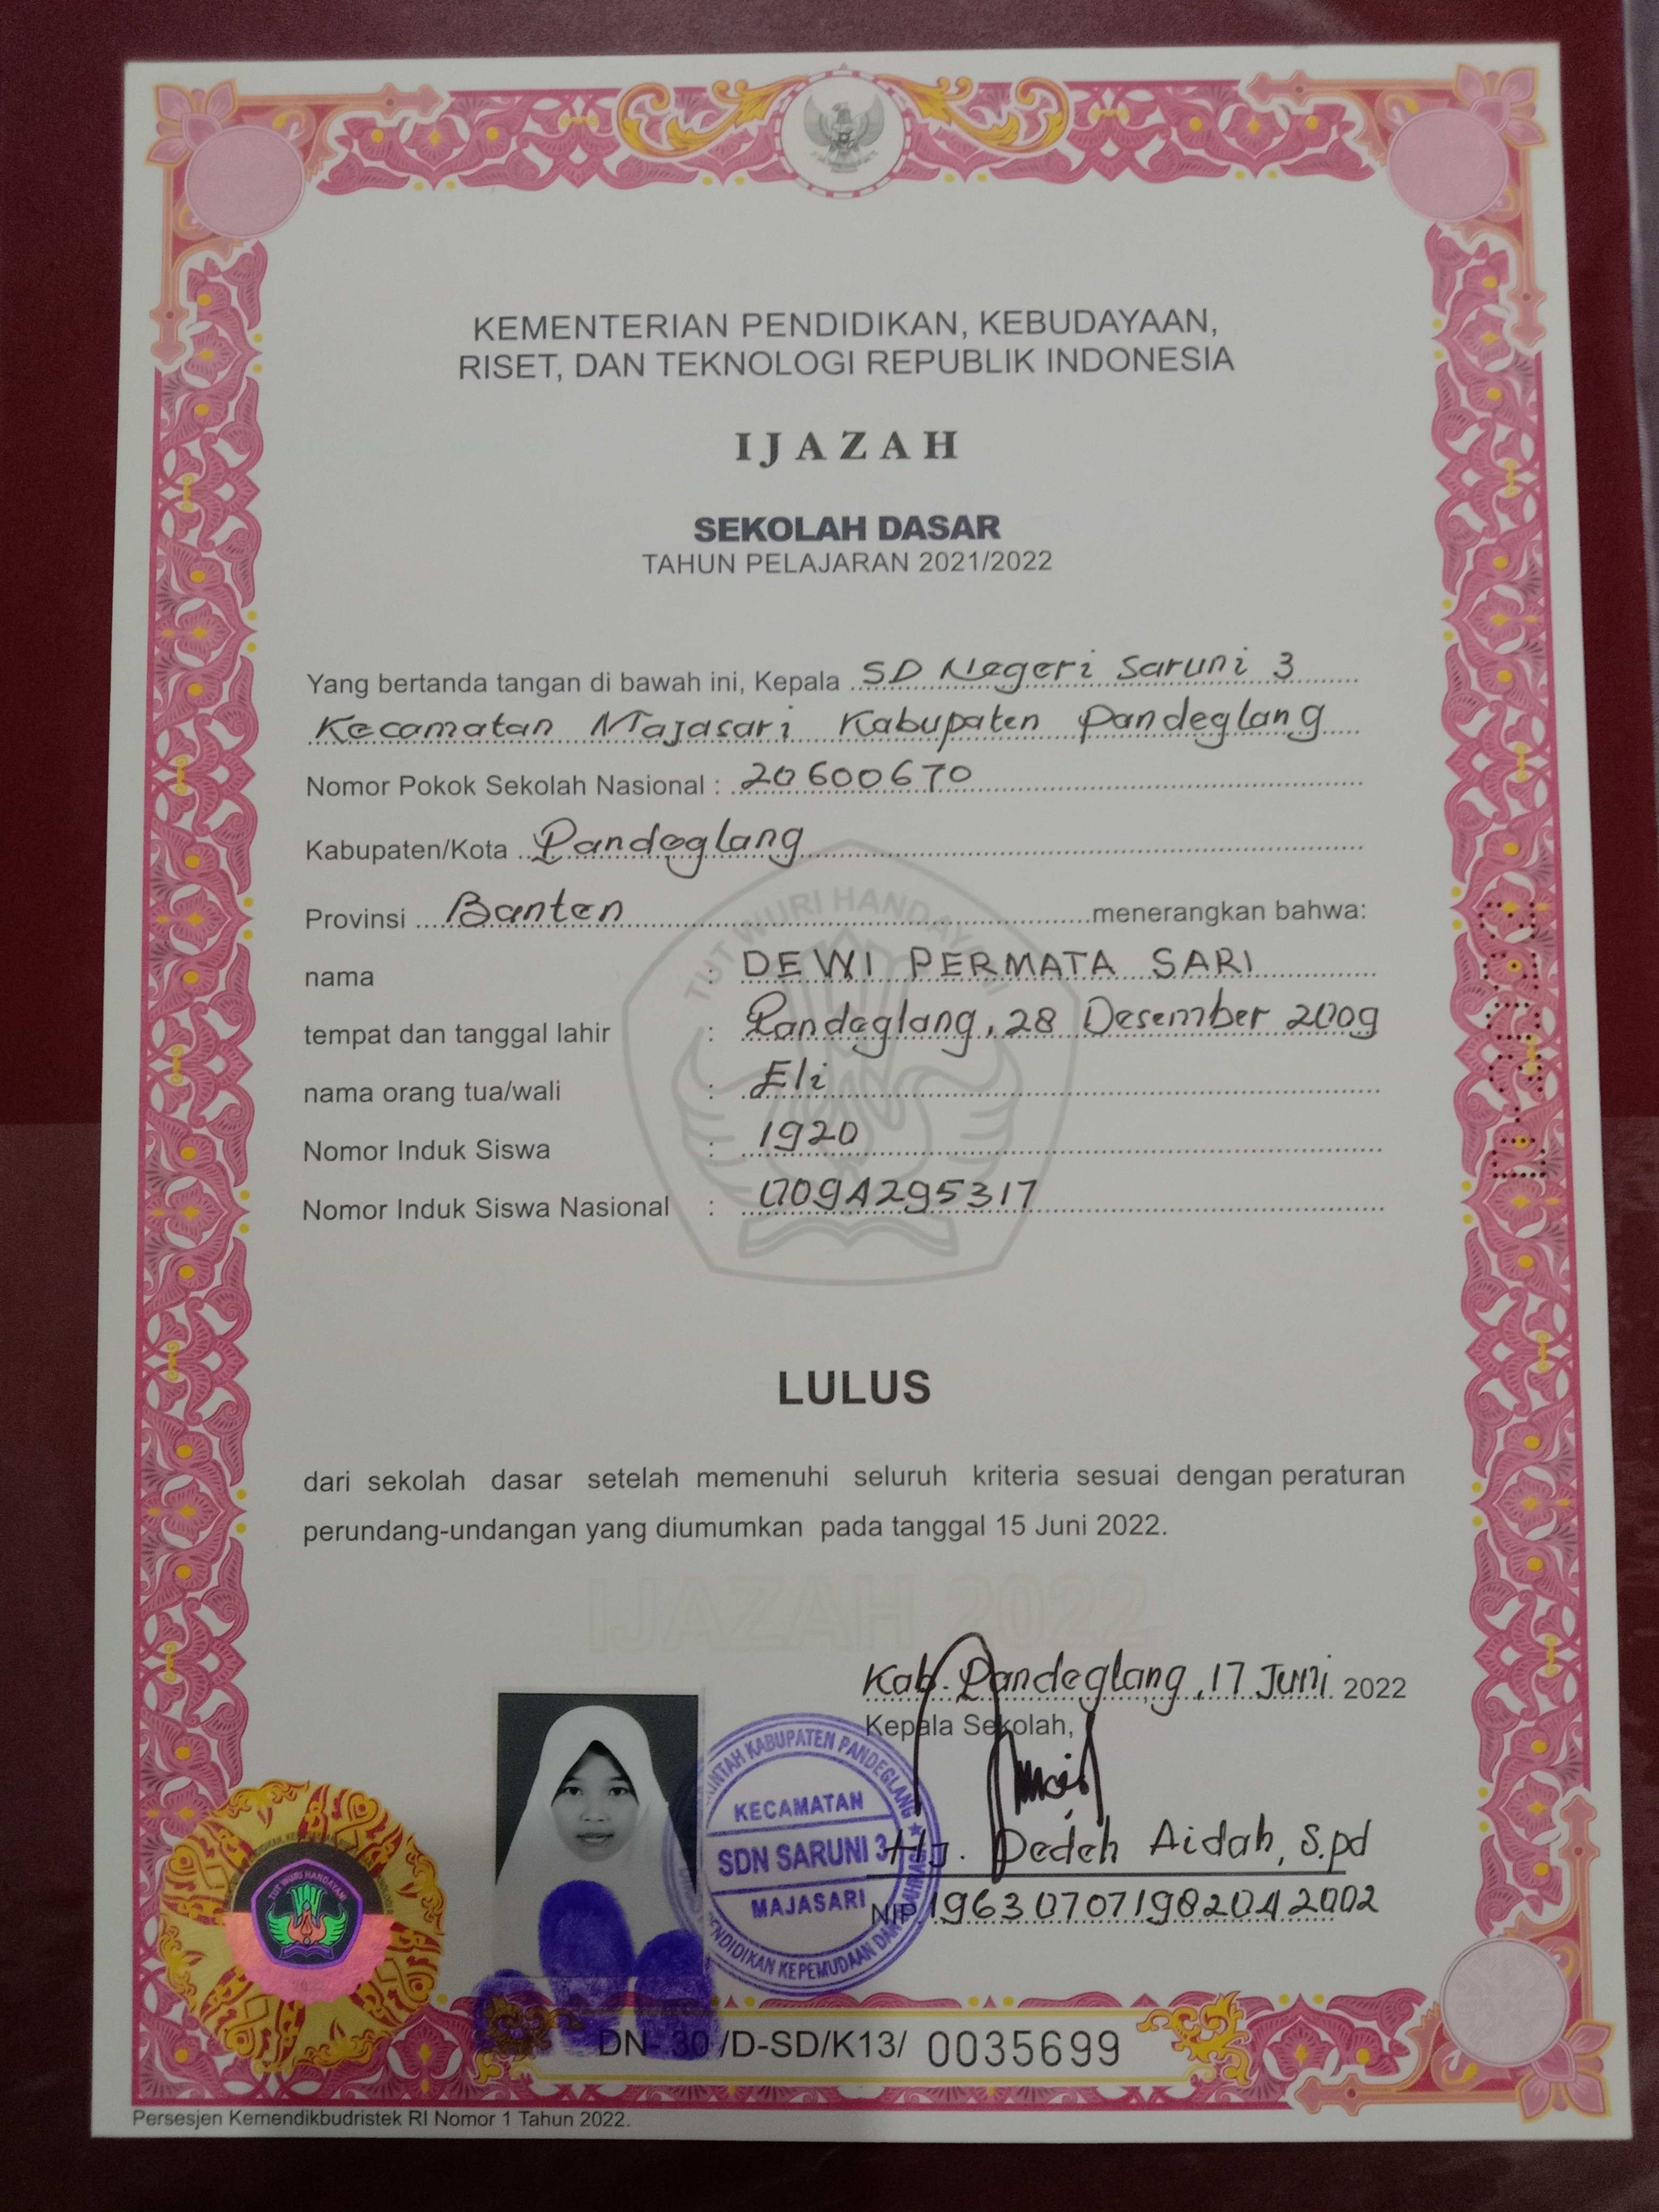 KEMENTERIAN PENDIDIKAN, KEBUDAYAAN,
RISET, DAN TEKNOLOGI REPUBLIK INDONESIA
IJAZAH
SEKOLAH DASAR
TAHUN PELAJARAN 2021/2022
Yang bertanda tangan di bawah ini, Kepala SD Negeri Saruni 3
Kecamatan Majasari Kabupaten Pandeglang
Nomor Pokok Sekolah Nasional : 20600670
Kabupaten/Kota Pandeglang
Provinsi Banten menerangkan bahwa:
TUT WURI HANDAYANI
nama : DEWI PERMATA SARI
tempat dan tanggal lahir : Pandeglang, 28 Desember 2009
nama orang tua/wali : Eli
Nomor Induk Siswa : 1920
Nomor Induk Siswa Nasional : 0094295317
LULUS
dari sekolah dasar setelah memenuhi seluruh kriteria sesuai dengan peraturan
perundang-undangan yang diumumkan pada tanggal 15 Juni 2022.
IJAZAH 2022
Kab. Pandeglang, 17 Juni 2022
Kepala Sekolah,
KABUPATEN PANDEGLANG
KECAMATAN
SDN SARUNI 3
MAJASARI
KEPEMUDAAN DAN
Hj. Dedeh Aidah, S.pd
NIP. 196307071982042002
TUT WURI HANDAYANI
DN- 30 /D-SD/K13/ 0035699
Persesjen Kemendikbudristek RI Nomor 1 Tahun 2022.